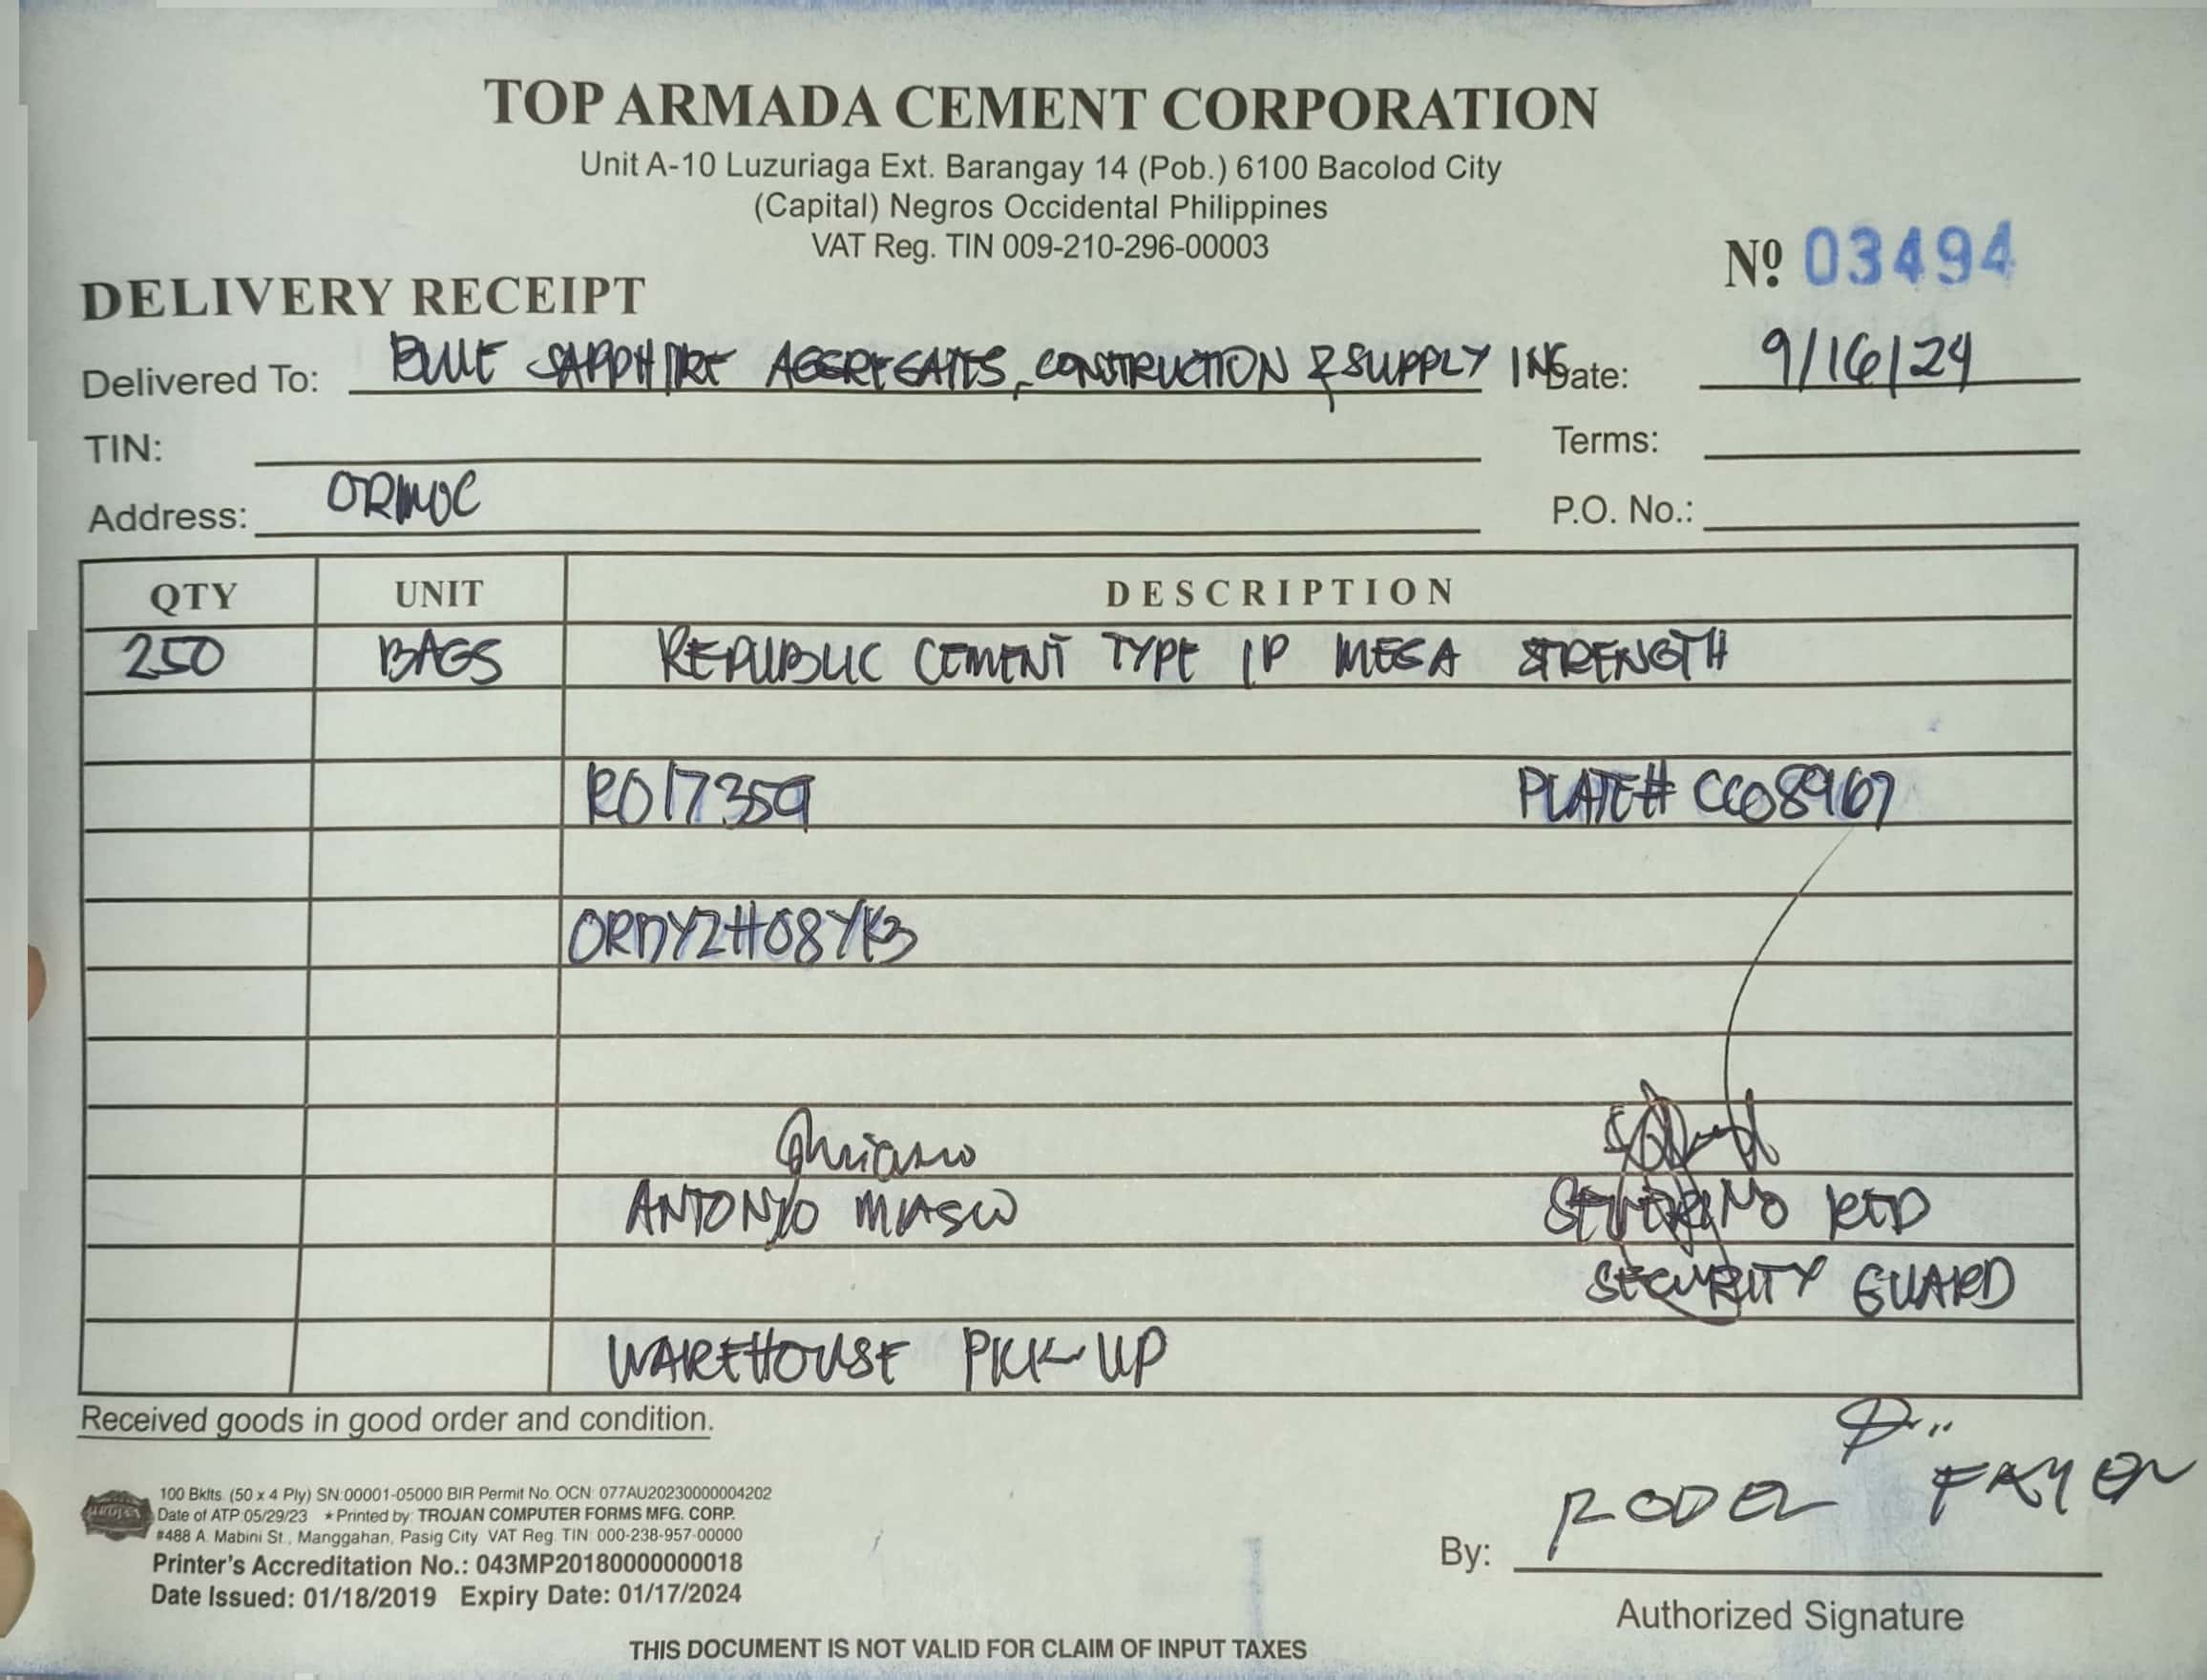 TOP ARMADA CEMENT CORPORATION
Unit A-10 Luzuriaga Ext. Barangay 14 (Pob.) 6100 Bacolod City
(Capital) Negros Occidental Philippines
VAT Reg. TIN 009-210-296-00003
Nº 03494
DELIVERY RECEIPT
Delivered To: BLUE SAPPHIRE AGGREGATES, CONSTRUCTION & SUPPLY INC Date: 9/16/24
TIN: Terms:
Address: ORMOC P.O. No.:
QTY UNIT DESCRIPTION
250 BAGS REPUBLIC CEMENT TYPE 1P MEGA STRENGTH
RO17359 PLATE# CCO8967
ORDYZH08YK3
ANTONIO MIASCO SEVERINO
SECURITY GUARD
WAREHOUSE PICK-UP
Received goods in good order and condition.
100 Bklts. (50 x 4 Ply) SN:00001-05000 BIR Permit No. OCN: 077AU20230000004202
Date of ATP 05/29/23 ★Printed by: TROJAN COMPUTER FORMS MFG. CORP.
#488 A. Mabini St., Manggahan, Pasig City VAT Reg. TIN: 000-238-957-00000
Printer's Accreditation No.: 043MP20180000000018
Date Issued: 01/18/2019 Expiry Date: 01/17/2024
By: RODEL
Authorized Signature
THIS DOCUMENT IS NOT VALID FOR CLAIM OF INPUT TAXES